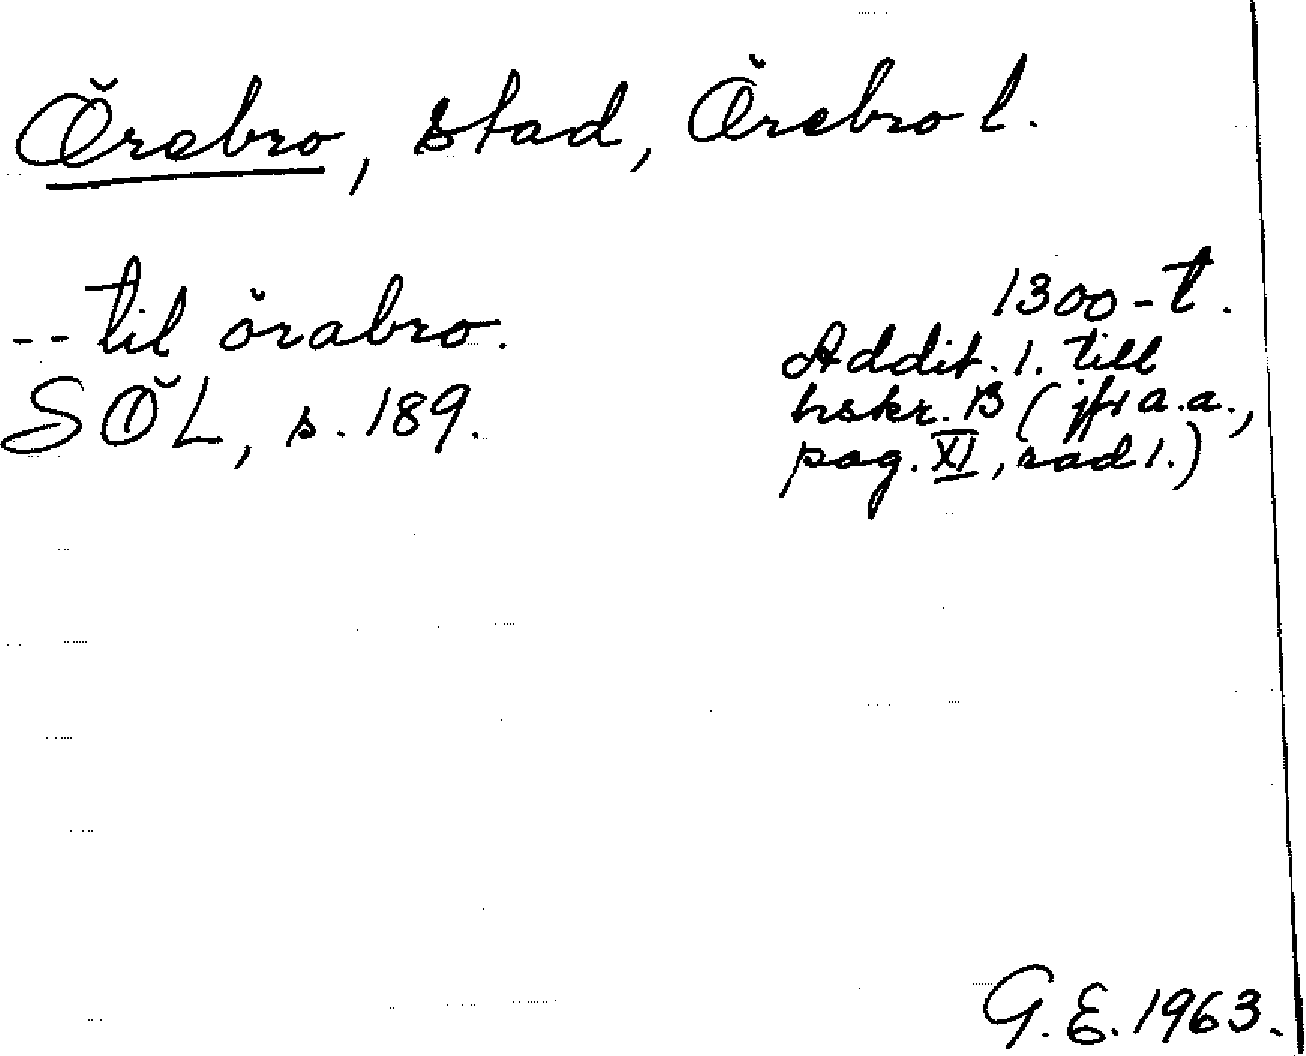 Örebro, stad, Örebro l.
-- til örabro.
SÖL, s. 189.
1300-t.
Addit. 1. till
hskr. B (jfr a.a.,
pag. XI, rad 1.)
G. E. 1963.